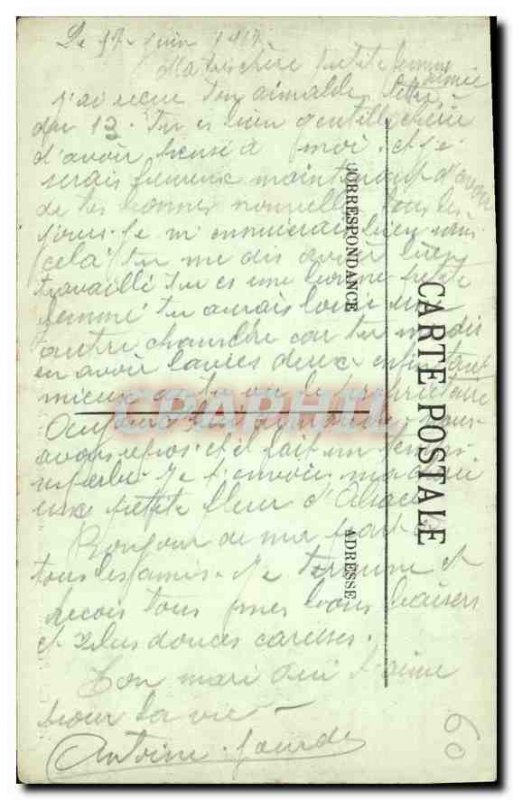 Le 17 Juin 1917
Ma bien chère petite femme aimée
J'ai reçu ton aimable lettre
du 13. Tu es bien gentille chérie
d'avoir pensé à moi. et je
serais heureux maintenant d'avoir
de tes bonnes nouvelles tous les
jours. Je m'ennuierais bien sans
cela tu me dis avoir bien
travaillé tu es une bonne petite
femme tu aurais loué une
autre chambre car tu me dis
en avoir deux enfin tant
mieux tu vu le propriétaire
Aujourd'hui dimanche nous
avons repos. et il fait un temps
superbe. Je t'envoie
une petite fleur d'Alsace
Bonjour de ma part à
tous les amis. Je termine et
reçois tous mes bons baisers
et plus douces caresses.
Ton mari qui t'aime
pour la vie
Antoine
CORRESPONDANCE
CARTE POSTALE
ADRESSE
60